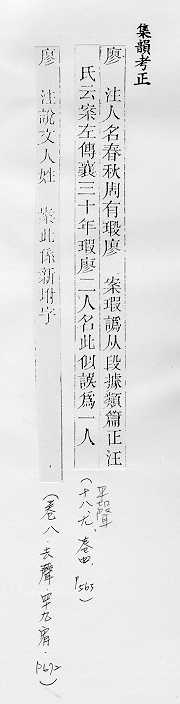 集韻考正
廖 注人名春秋周有瑕廖 案瑕譌从段據類篇正汪
氏云案左傳襄三十年瑕廖二人名此似誤爲一人
平聲
(十八尤、卷四、P563)
廖 注說文人姓 案此係新坿字
(卷八·去聲·四九宥·P672)